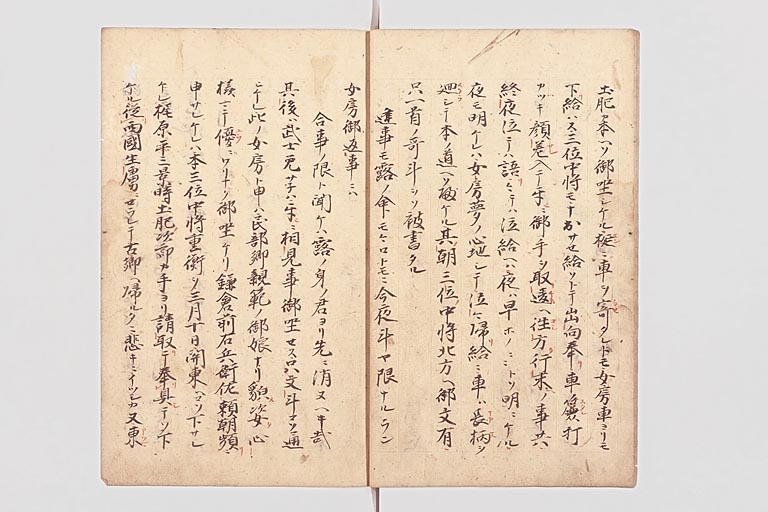 土肥カ本ヘソ御坐シケル縁ニ車ヲ寄タレトモ女房車ヨリモ
下給ハス三位中将モナおサセ給ソトテ出向奉車ノ簾打
カツキ顔差入テ御手ヲ取違ヘ往方行末ノ事共
終夜泣テハ語ヒ語テハ泣給ヘハ夜ハ早ホノミトソ明ニケル
夜モ明ケレハ女房夢ノ心地シテ泣ミ帰給ニ車ハ長柄ヲ
廻シテ本ノ道ヘソ遣ケル其朝三位中将北方ヘ御文有
只一首ノ哥斗ソ被書タル
逢事モ露ノ命モモロトモニ今夜斗ヤ限ナルラン
女房御返事ニハ
合事ノ限ト聞ケハ露ノ身ノ君ヨリ先ニ消ヌヘキ哉
其後ハ武士免サネハ相見事御坐セス只文斗ソ通
ヒケル此ノ女房ト申ハ民部卿親範ノ御娘ナリ貌姿心
様ミテ優ニワリナク御坐ケリ鎌倉前右兵衛佐頼朝頻ニ
申サレケレハ本三位中将重衡ヲ三月十日関東ヘソ下サレ
ケル梶原平三景時土肥次郎カ手ヨリ請取テ奉具テソ下
ケル従西國生虜ニセラレテ古郷ヘ帰ルタニ悲キニイツシカ又東